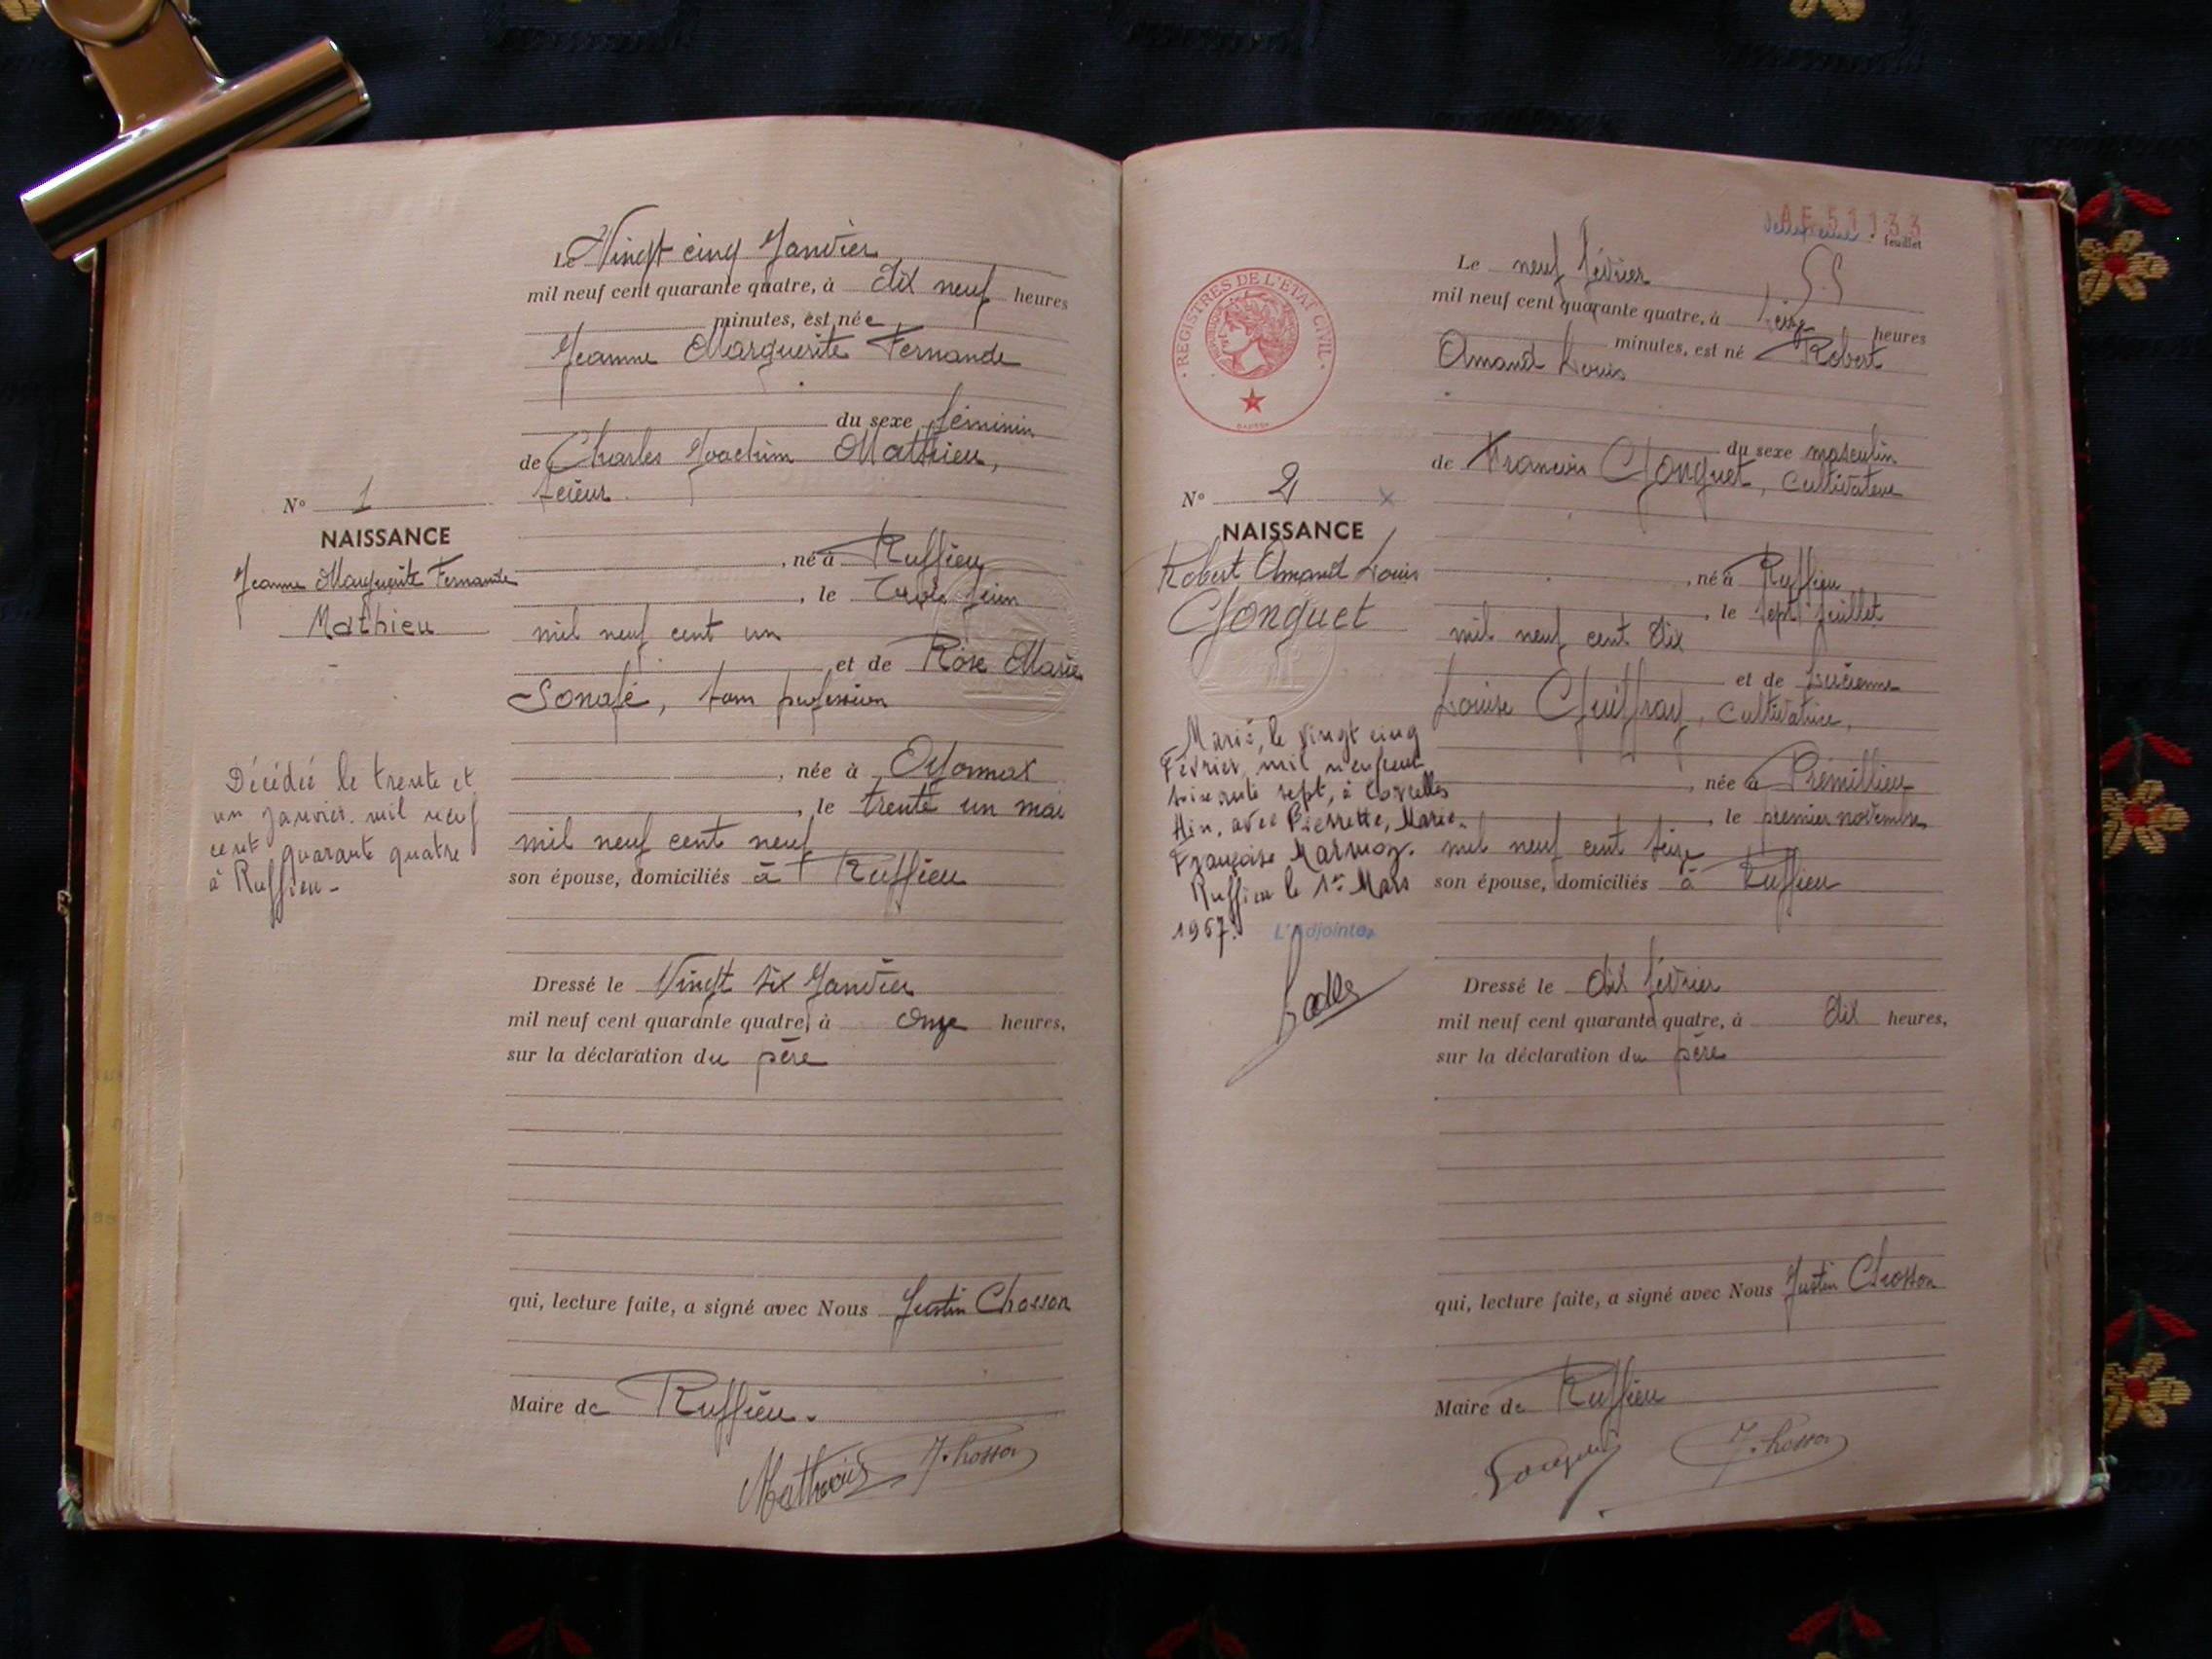 Le Vingt cinq Janvier
mil neuf cent quarante quatre, à dix neuf heures
minutes, est née
Jeanne Marguerite Fernande
du sexe féminin
de Charles Joachim Mathieu,
scieur
N° 1
NAISSANCE
Jeanne Marguerite Fernande
Mathieu
, né à Ruffieu
, le Trois juin
mil neuf cent un
et de Rose Marie
sans profession
Décédée le trente et
un janvier mil neuf
cent quarante quatre
à Ruffieu -
, née à Oyonnax
, le trente un mai
mil neuf cent neuf
son épouse, domiciliés à Ruffieu
Dressé le Vingt six Janvier
mil neuf cent quarante quatre, à onze heures,
sur la déclaration du père
qui, lecture faite, a signé avec Nous Justin Chosson
Maire de Ruffieu.
Mathieu J. Chosson
AF 51133
feuillet
Le neuf février
mil neuf cent quarante quatre, à seize heures
minutes, est né Robert
Amand Louis
REGISTRES DE L'ETAT CIVIL
du sexe masculin
de François Gonguet, cultivateur
N° 2
NAISSANCE
Robert Amand Louis
Gonguet
, né à Ruffieu
, le sept juillet
mil neuf cent dix
et de Lucienne
Louise Guiffray, cultivatrice,
Marié, le vingt cinq
Février, mil neuf cent
soixante sept, à Corcelles
Ain, avec Pierrette, Marie.
Françoise Marmoz.
Ruffieu le 1er Mars
1967.
L'Adjoint
, née à Prémillieu
, le premier novembre
mil neuf cent seize
son épouse, domiciliés à Ruffieu
Dressé le dix février
mil neuf cent quarante quatre, à dix heures,
sur la déclaration du père
qui, lecture faite, a signé avec Nous Justin Chosson
Maire de Ruffieu
Gonguet J. Chosson